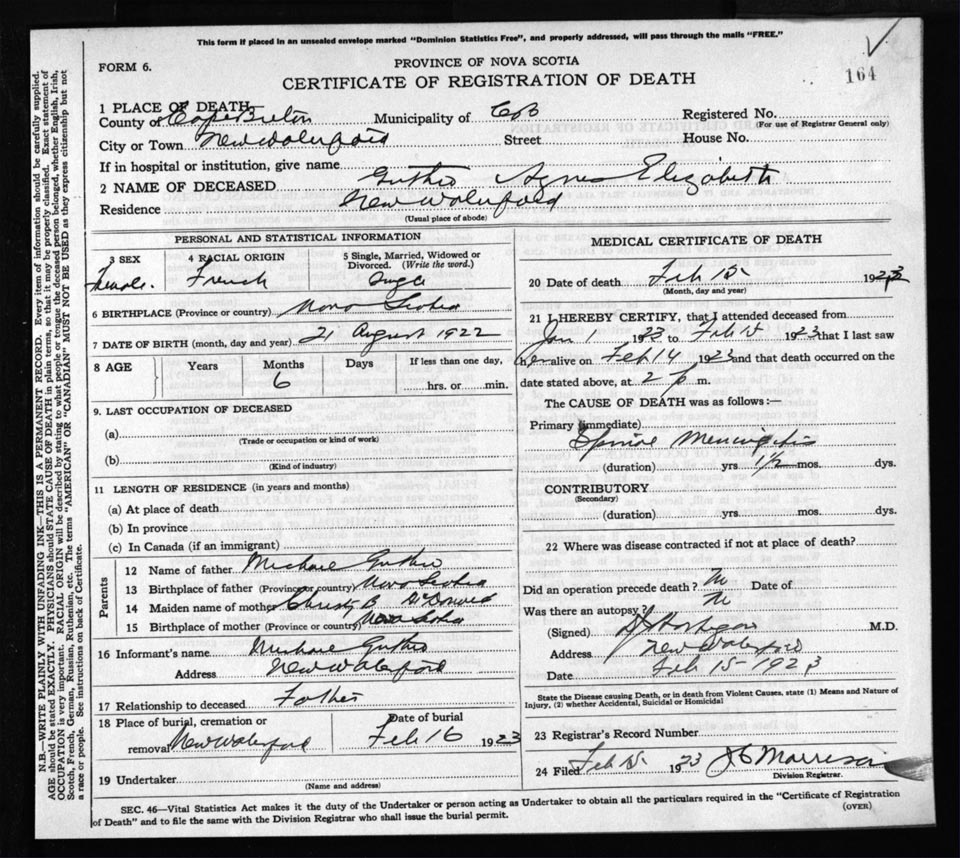 This form if placed in an unsealed envelope marked "Dominion Statistics Free", and properly addressed, will pass through the mails "FREE."
164
FORM 6.
PROVINCE OF NOVA SCOTIA
CERTIFICATE OF REGISTRATION OF DEATH
1 PLACE OF DEATH
County of Cape Breton Municipality of CB Registered No.
(For use of Registrar General only)
City or Town New Waterford Street House No.
If in hospital or institution, give name
2 NAME OF DECEASED Guthro Agnes Elizabeth
Residence New Waterford
(Usual place of abode)
PERSONAL AND STATISTICAL INFORMATION
3 SEX 4 RACIAL ORIGIN 5 Single, Married, Widowed or Divorced. (Write the word.)
Female. French Single
6 BIRTHPLACE (Province or country) Nova Scotia
7 DATE OF BIRTH (month, day and year) 21 August 1922
8 AGE Years Months Days If less than one day,
6 hrs. or min.
9. LAST OCCUPATION OF DECEASED
(a)
(Trade or occupation or kind of work)
(b)
(Kind of industry)
11 LENGTH OF RESIDENCE (in years and months)
(a) At place of death
(b) In province
(c) In Canada (if an immigrant)
Parents
12 Name of father Michael Guthro
13 Birthplace of father (Province or country) Nova Scotia
14 Maiden name of mother Christy B McDonald
15 Birthplace of mother (Province or country) Nova Scotia
16 Informant's name Michael Guthro
Address New Waterford
17 Relationship to deceased Father
18 Place of burial, cremation or removal New Waterford Date of burial Feb 16 1923
19 Undertaker
(Name and address)
MEDICAL CERTIFICATE OF DEATH
20 Date of death Feb 15 1923
(Month, day and year)
21 I HEREBY CERTIFY, that I attended deceased from
Jan 1 1923 to Feb 15 1923 that I last saw
her alive on Feb 14 1923 and that death occurred on the
date stated above, at 2 p m.
The CAUSE OF DEATH was as follows:—
Primary (immediate)
Spinal Meningitis
(duration) yrs. 1½ mos. dys.
CONTRIBUTORY
(Secondary)
(duration) yrs. mos. dys.
22 Where was disease contracted if not at place of death?
Did an operation precede death? No Date of
Was there an autopsy? No
(Signed) M.D.
Address New Waterford
Date Feb 15-1923
State the Disease causing Death, or in death from Violent Causes, state (1) Means and Nature of Injury, (2) whether Accidental, Suicidal or Homicidal
23 Registrar's Record Number
24 Filed Feb 15 1923 J C Morrison
Division Registrar.
SEC. 46—Vital Statistics Act makes it the duty of the Undertaker or person acting as Undertaker to obtain all the particulars required in the "Certificate of Registration
of Death" and to file the same with the Division Registrar who shall issue the burial permit.
(OVER)
N.B.—WRITE PLAINLY WITH UNFADING INK—THIS IS A PERMANENT RECORD. Every item of information should be carefully supplied.
AGE should be stated EXACTLY. PHYSICIANS should STATE CAUSE OF DEATH in plain terms, so that it may be properly classified. Exact statement of
OCCUPATION is very important. RACIAL ORIGIN will be described by stating to what people or tongue the deceased person belonged, whether English, Irish,
Scotch, French, German, Russian, Ruthenian, etc. The terms "AMERICAN" OR "CANADIAN" MUST NOT BE USED as they express citizenship but not
a race or people. See instructions on back of Certificate.